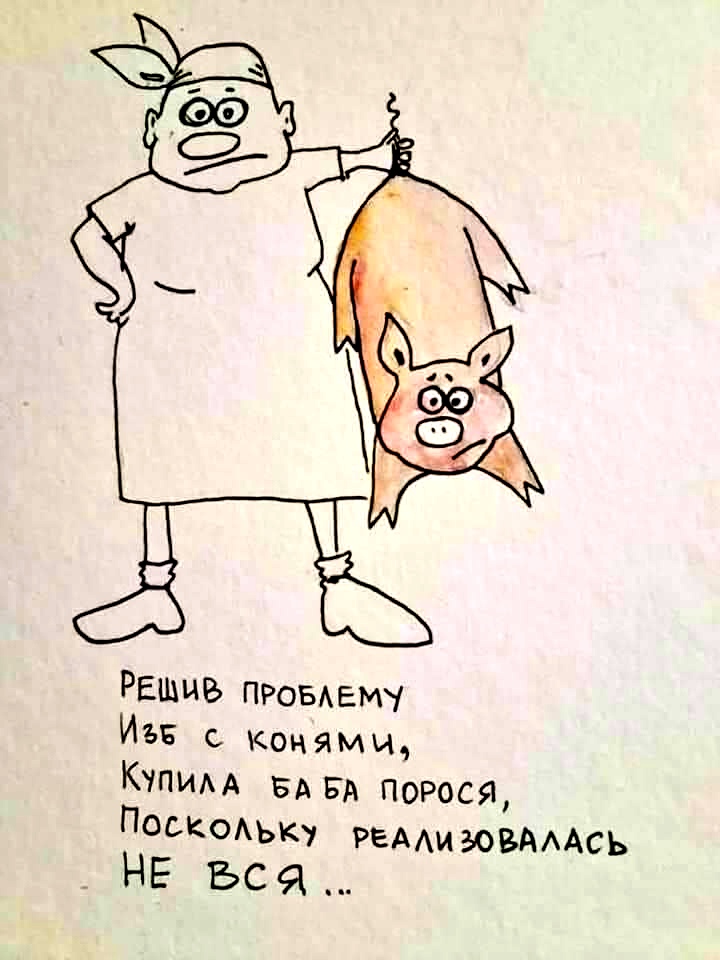 Решив проблему
Изб с конями,
Купила баба порося,
Поскольку реализовалась
НЕ ВСЯ...